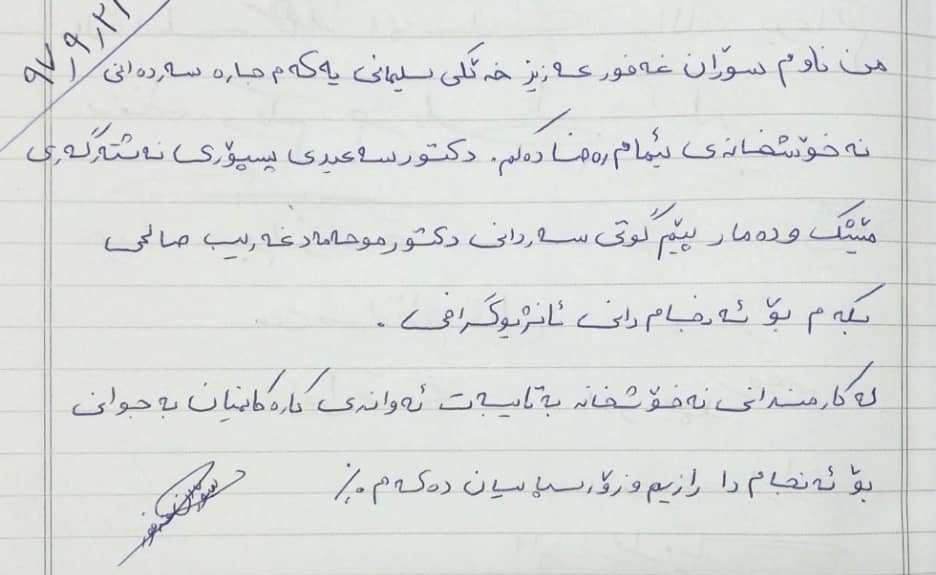 ٩٧٫٩٫٢١
من ناوم سۆران غەفور عەزیز خەڵکی سلیمانی یەکەم جارە سەردەانی
نەخۆشخانەی ئیمام رەضا دەکم. دکتور سەعیدی پسپۆری نەشتەرگەری
مێشک ودەمار پێم گوتی سەردانی دکتور موحەمەد غەریب صالحی
بکەم بۆ ئەنجام دانی ئانژیوگرافی.
لە کارمندانی نەخۆشخانە بەتایبەت ئەوانەی کارەکانیان بەجوانی
بۆ ئەنجام دا رازیم وزۆر سپاسیان دەکەم.
سۆران غفور